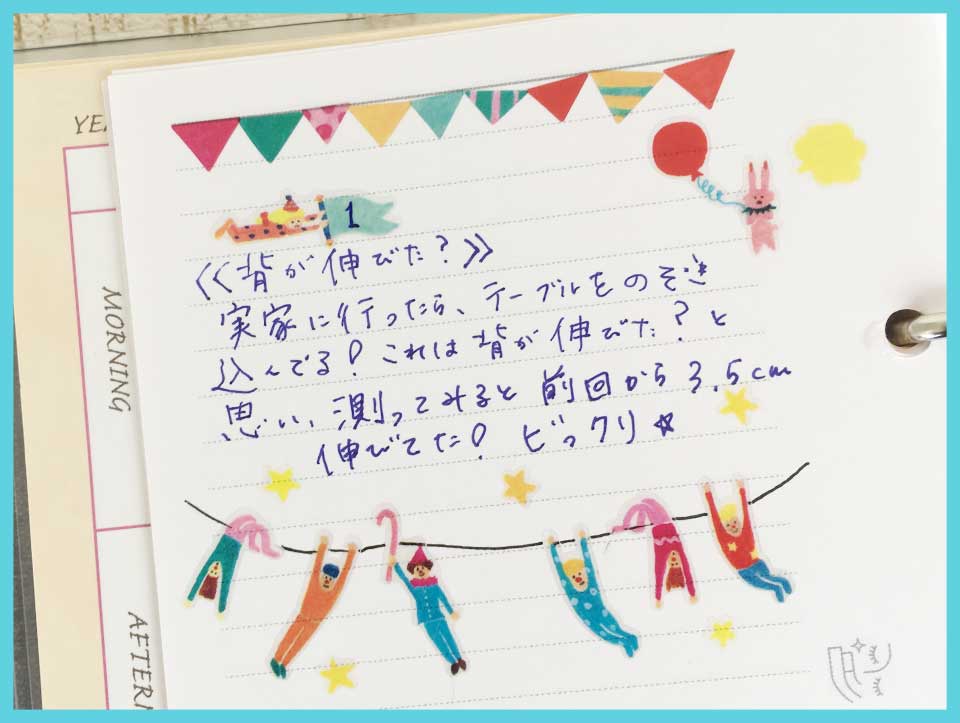 YEA
1
《背が伸びた?》
実家に行ったら、テーブルをのぞき
込んでる! これは背が伸びた? と
思い、測ってみると前回から3.5cm
伸びてた! ビックリ☆
MORNING
AFTERN